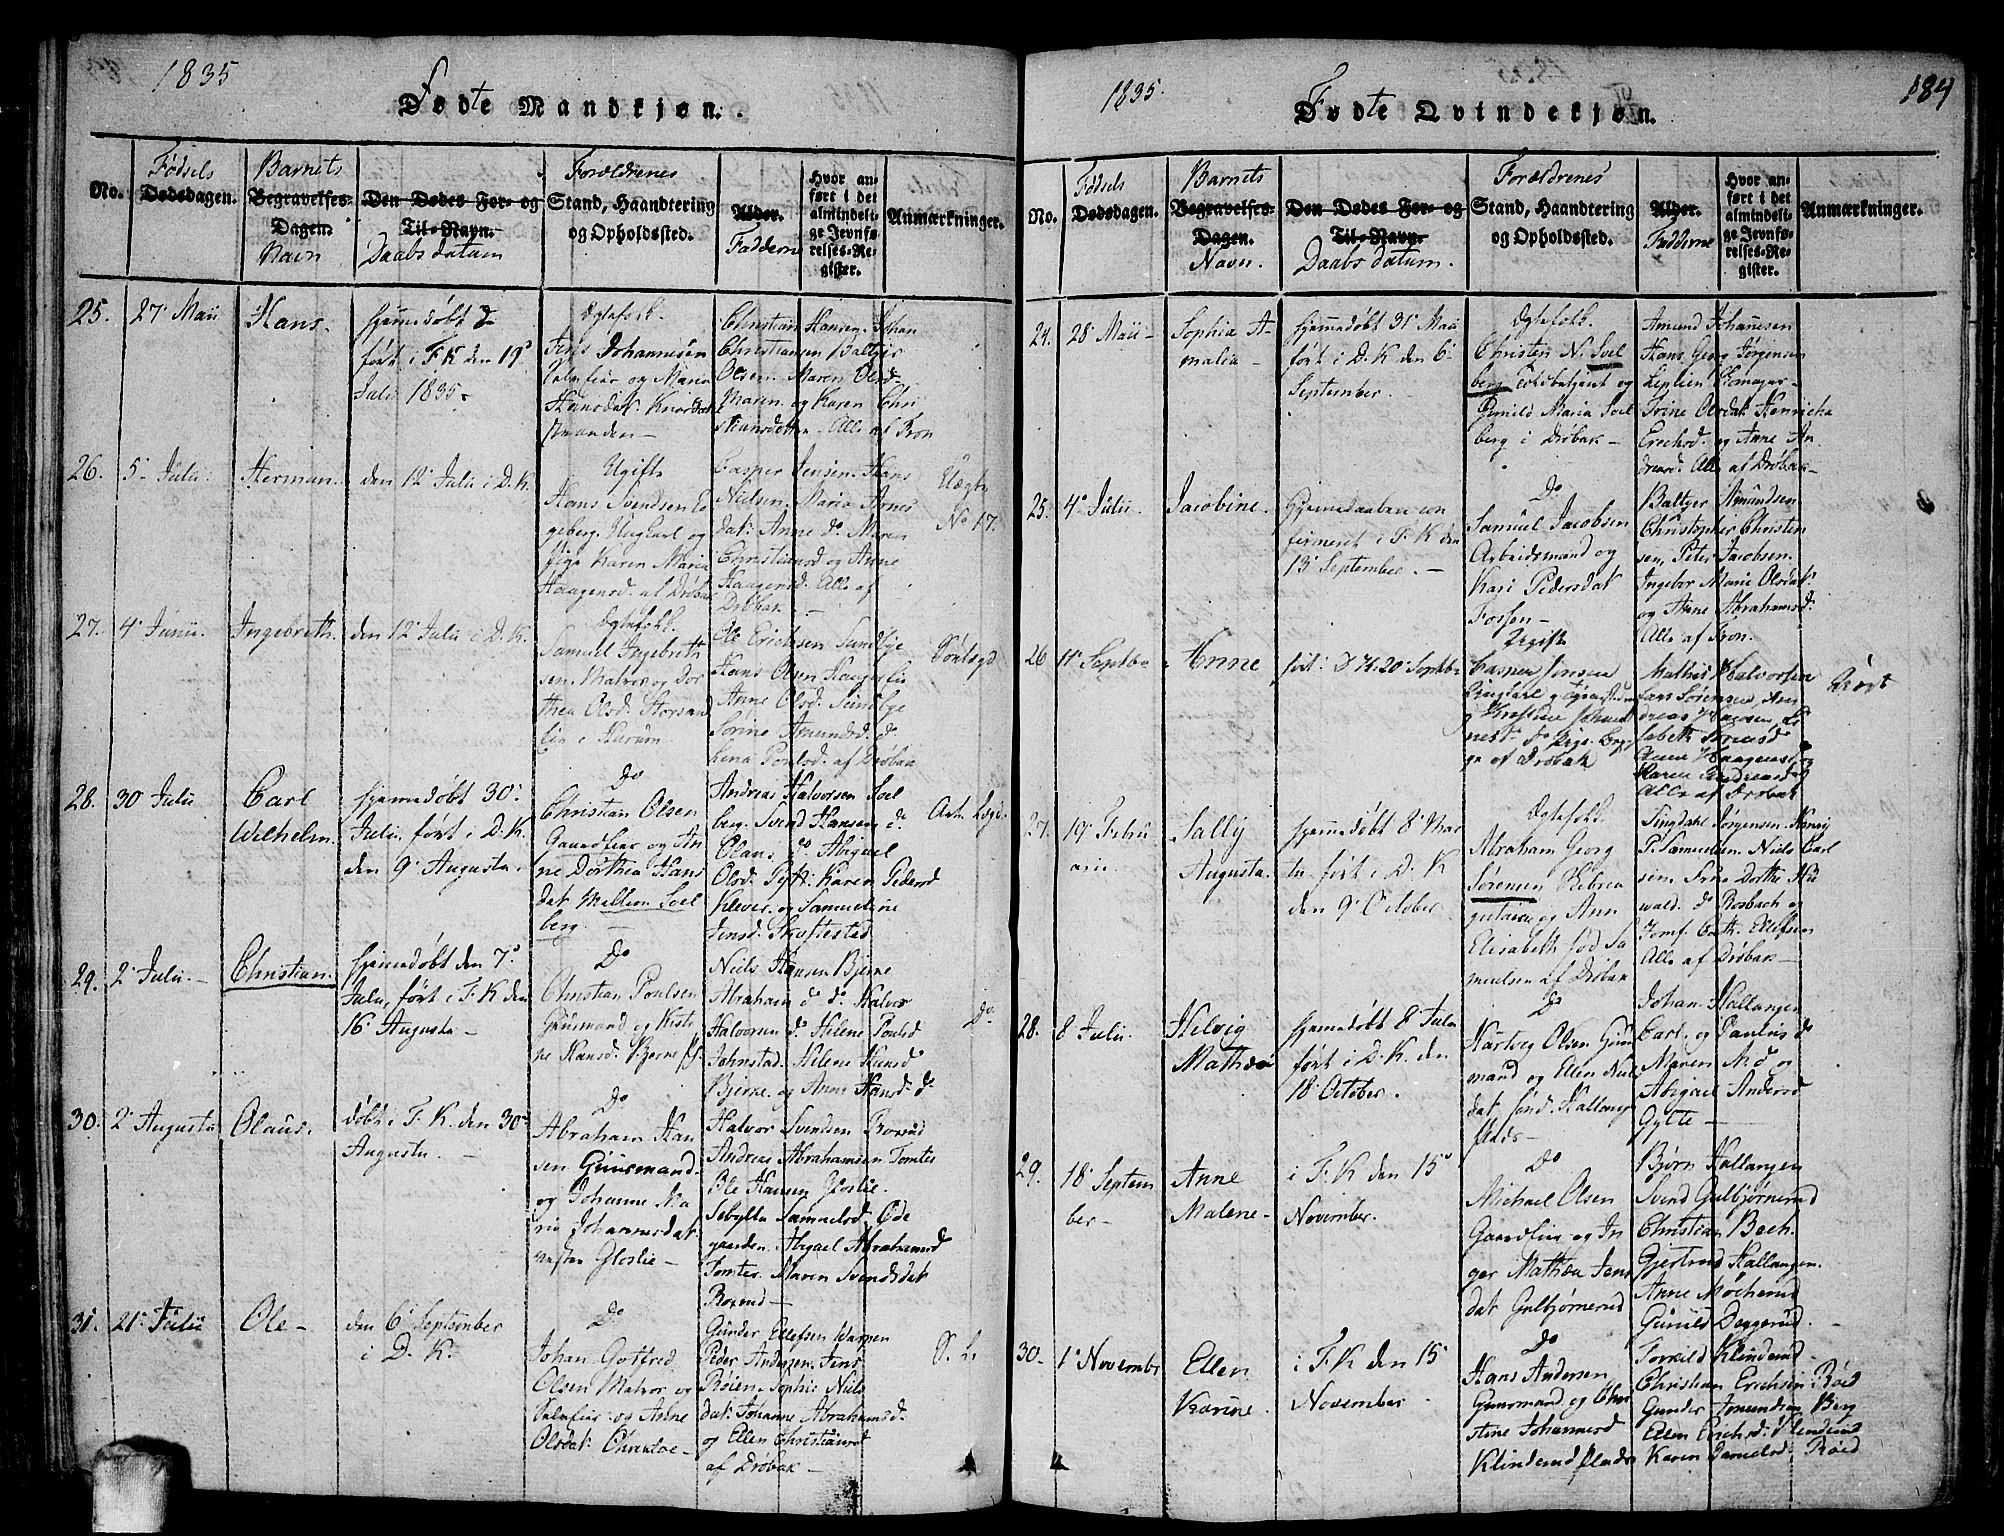 1835
Fødte Mandkjøn.
No.
Fødsels
Dødsdagen.
Barnets
Begravelses-
Dagen.
Navn
Den Dødes For- og
Til-Navn.
Daabs datum
Forældrenes
Stand, Haandtering
og Opholdssted.
Alder.
Fadderne
Hvor an-
ført i det
almindeli-
ge Jevnfø-
relses-Re-
gister.
Anmærkninger.
25. 27de Maii
Hans.
hjemmedøbt
ført i F. K. den 19de
Julii 1835.
Ægtefolk.
Jens Johannesen
og Maria
Hansdat.
Christian Hansen. Johan
Christiansen Baltzer
Olsen. Maren Olsd.
Maren og Karen Chri
stiansdøttre. Alle af Fron
26. 5. Julii.
Herman.
den 12. Julii i D. K.
Ugifte
Hans Svendsen Eo
geberg. Ungkarl og
Pige Karen Maria
Haagensd. af Drøbak
Casper Jensen. Hans
Nielsen. Maria Arnes
dat. Anne do. Maren
Christiansd og Anne
Haagensd. Alle af
Drøbak
Uægte
No 17.
27. 4. Junii.
Ingebreth.
den 12. Julii i D. K.
Ægtefolk.
Samuel Ingebreth
sen. Matros og Dor
thea Olsd. Storsand
eie i Hurum
Ole Ericksen Sundbye
Hans Olsen
Anne Olsd. Sundbye
Sorine Amundsd. do
Lena Poulsd. af Drøbak
28. 30 Julii
Carl
Wilhelm.
hjemmedøbt 30.
Julii, ført i D. K.
den 9. Augusta.
Do
Christian Olsen
Gaardfeier og An
ne Dorthea Hans
dat. Mellem Soel
berg.
Andreas Halvorsen Soel
berg. Svend Hansen do.
Olaus do Abigael
Olsd. Karen Pedersd
Klever. og Samueline
Jensd. Skoftestad
29. 2. Julii.
Christian.
hjemmedøbt den 7.
Julii, ført i F. K. den
16. Augusta
Do
Christian Poulsen
Huusmand og Kirsti
ne Hansd. Bjerne
Niels Hansen Bjerne
Abraham do do. Halvor
Halvorsen do Helene Poulsd
Johnstad. Helene Hansd
Bjerke. og Anne Hansd. do
Do
30. 2. Augusta
Olaus.
døbt i F. K. den 30.
Augusta.
Do
Abraham Han
sen Huusmand.
og Johanne Ma
ria Johannesdat
Gloslie
Halvor Svendsen Roxrud
Andreas Abrahamsen Tomter
Ole Hansen Gloslie.
Sebylla Samuelsd. Øde
gaarden. Abigael Abrahamsd
Tomter. Maren Svendsdat
Roxrud
31. 21. Julii
Ole
den 6. September
i D. K.
Do
Johan Gotfred
Olsen Matros og
og Anne
Olsdat.
Gunder Ellefsen
Peder Andersen. Jens
Røien. Sophie Niels
dat. Johanne Abrahamsd.
og Ellen Christiansd
af Drøbak
S. L.
1835.
184
Fødte Qvindekjøn.
No.
Fødsels
Dødsdagen.
Barnets
Begravelses-
Dagen.
Navn.
Den Dødes For- og
Til-Navn.
Daabs datum.
Forældrenes
Stand, Haandtering
og Opholdssted.
Alder.
Fadderne
Hvor an-
ført i det
almindeli-
ge Jevnfø-
relses-Re-
gister.
Anmærkninger.
24. 28. Maii
Sophia A
malia
hjemmedøbt 31. Maii
ført i D. K. den 6.
September.
Ægtefolk.
Christen N. Soel
berg Toldbetjent og
Gunild Maria Soel
berg i Drøbak
Amund Johannesen
Hans Georg Jørgensen
Trine Olsdat Henricha
Erichsd. og Anne An
dreasd. Alle af Drøbak
25. 4. Julii.
Jacobine.
Hjemmedaaben con
firmeret i F. K. den
13 September.
Do
Samuel Jacobsen
Arbeidsmand og
Kari Pedersdat
Fossen
Baltzer Amundsen
Christopher Christen
sen, Peter Jacobsen.
Ingebor Marie Olsdat.
og Anne Abrahamsd.
Alle af Fron.
26 11. Septbr
Anne
ført i D. K. 20. Septbr
Ugift
Casper Jensen
Ungkarl
af Drøbak
Mathis Halvorsen
Lars Sørensen, An
dreas
Alle af Drøbak
Uægte
27. 19. Febru
arii
Sally
Augusta.
hjemmedøbt 8. Mar
tii, ført i D. K.
den 9. October.
Ægtefolk.
Abraham Georg
Sørensen
og Ann
Elisabeth fød Sa
muelsen af Drøbak
Tingdahl Sørensen. Henry
P. Samuelsen. Niels Carl
Alle af Drøbak
28. 8 Julii.
Helvig
Mathea
hjemmedøbt 8 Julii
ført i D. K. den
18. October.
Do
Hartvig Olsen Huus
mand og Ellen Niels
dat. Hallangs
plads
Johan Hallangen
Carl og Paulus do
Maren N. d og
Abigael Andersd
Gylte
29. 18. Septem
ber
Anne
Malene
i F. K. den 15.
November.
Do
Michael Olsen
Gaardfeier og In
ger Mathea Jens
dat Gulbjørnrud
Bjørn Hallangen
Svend Gulbjørnrud
Christian Bech.
Gjertrud Hallangen.
Anne Mocherud
Gunild Deggerud.
30. 1. Novembr
Ellen
Karine.
i F. K. den 15.
November
Do
Hans Andersen
Huusmand og Chri
stine Johannesd
Klinderud plads
Torkild Klinderud.
Christian Erichsen Røed
Gunder Amundsen Berg
Ellen Erichsd. Klenderud
Karen Danielsd. Røed